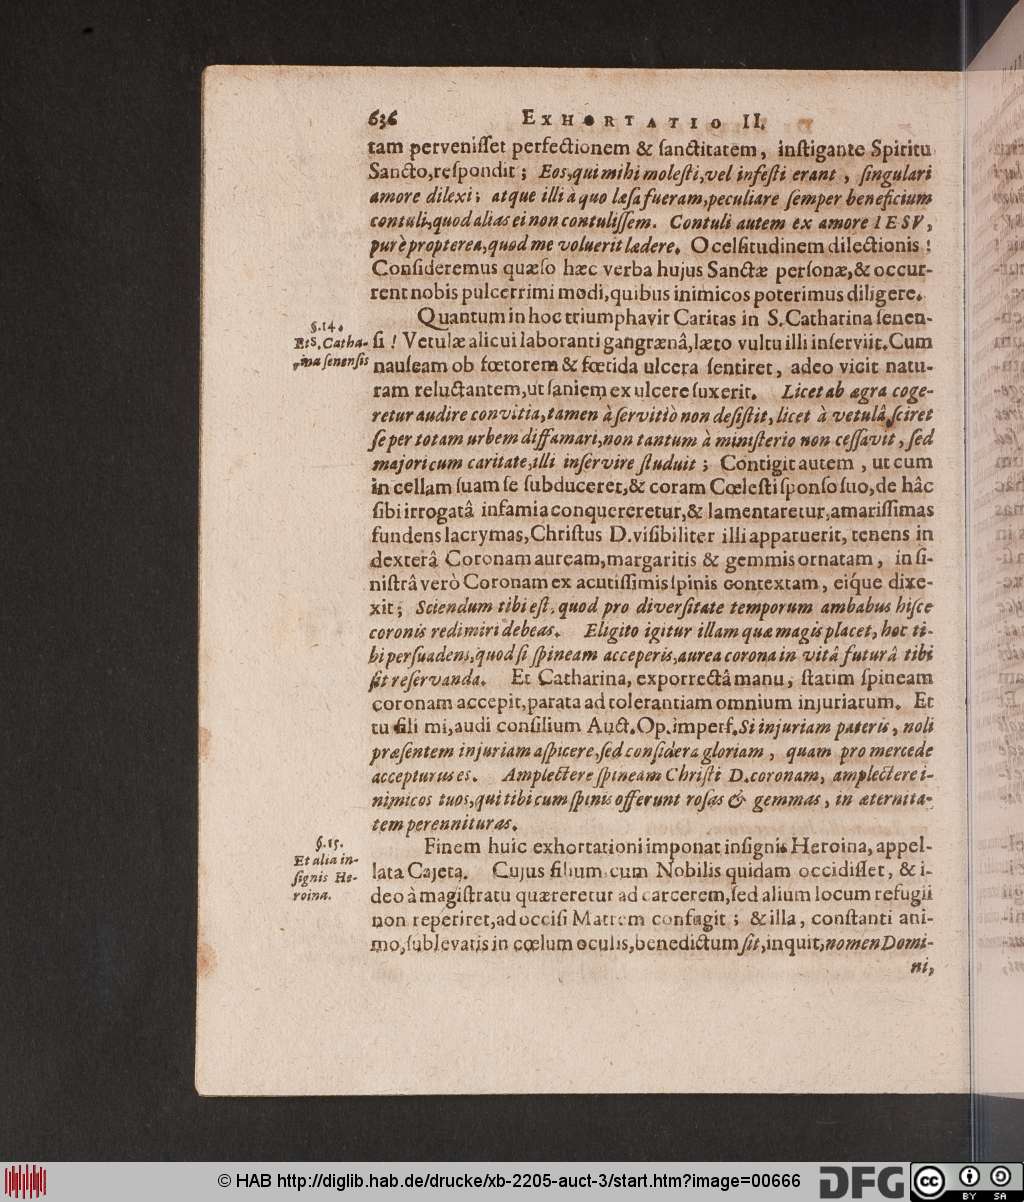 636 EXHORTATIO II.
tam perveniſſet perfectionem & ſanctitatem, inſtigante Spiritu
Sancto, reſpondit; Eos, qui mihi moleſti, vel infeſti erant, ſingulari
amore dilexi; atque illi à quo læſa fueram, peculiare ſemper beneficium
contuli, quod aliàs ei non contuliſſem. Contuli autem ex amore IESV,
purè propterea, quod me voluerit lædere. O celſitudinem dilectionis!
Conſideremus quæſo hæc verba hujus Sanctæ perſonæ, & occur-
rent nobis pulcerrimi modi, quibus inimicos poterimus diligere.
§. 14.
Et S. Catha-
rina ſenenſis
Quantum in hoc triumphavit Caritas in S. Catharina ſenen-
ſi! Vetulæ alicui laboranti gangrænâ, læto vultu illi inſerviit. Cum
nauſeam ob fœtorem & fœtida ulcera ſentiret, adeo vicit natu-
ram reluctantem, ut ſaniem ex ulcere ſuxerit. Licet ab ægra coge-
retur audire convitia, tamen à ſervitiò non deſiſtit, licet à vetulâ, ſciret
ſe per totam urbem diffamari, non tantum à miniſterio non ceſſavit, ſed
majori cum caritate, illi inſervire ſtuduit; Contigit autem, ut cum
in cellam ſuam ſe ſubduceret, & coram Cœleſti ſponſo ſuo, de hâc
ſibi irrogatâ infamia conquereretur, & lamentaretur, amariſſimas
fundens lacrymas, Chriſtus D. viſibiliter illi apparuerit, tenens in
dexterâ Coronam auream, margaritis & gemmis ornatam, in ſi-
niſtrâ verò Coronam ex acutiſſimis ſpinis contextam, eiq́ue dixe-
xit; Sciendum tibi eſt, quod pro diverſitate temporum ambabus hiſce
coronis redimiri debeas. Eligito igitur illam quæ magis placet, hoc ti-
bi perſuadens, quod ſi ſpineam acceperis, aurea corona in vitâ futurâ tibi
ſit reſervanda. Et Catharina, exporrectâ manu, ſtatim ſpineam
coronam accepit, parata ad tolerantiam omnium injuriarum. Et
tu fili mi, audi conſilium Auct. Op. imperf. Si injuriam pateris, noli
præſentem injuriam aſpicere, ſed conſidera gloriam, quam pro mercede
accepturus es. Amplectere ſpineam Chriſti D. coronam, amplectere i-
nimicos tuos, qui tibi cum ſpinis offerunt roſas & gemmas, in æternita-
tem perennituras.
§. 15.
Et alia in-
ſignis He-
roina.
Finem huic exhortationi imponat inſignis Heroina, appel-
lata Cajeta. Cujus filium cum Nobilis quidam occidiſſet, & i-
deo à magiſtratu quæreretur ad carcerem, ſed alium locum refugii
non reperiret, ad occiſi Matrem confugit; & illa, conſtanti ani-
mo, ſublevatis in cœlum oculis, benedictum ſit, inquit, nomen Domi-
ni,
© HAB http://diglib.hab.de/drucke/xb-2205-auct-3/start.htm?image=00666
DFG
cc BY SA